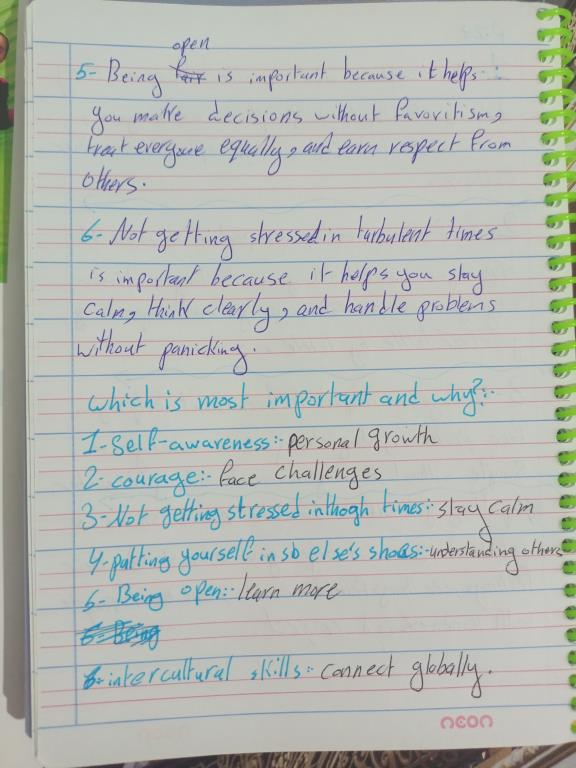 open
5- Being fair is important because it helps :
you make decisions without favoritism,
treat everyone equally, and earn respect from
others.
6- Not getting stressed in turbulent times
is important because it helps you stay
calm, think clearly, and handle problems
without panicking.
which is most important and why?:-
1-Self-awareness:- personal growth
2-courage:- face challenges
3-Not getting stressed in thogh times:- stay calm
4-putting yourself in sb else's shoes:-understanding others
5- Being open:- learn more
6- Being
6-intercultural skills:- connect globally.
neon